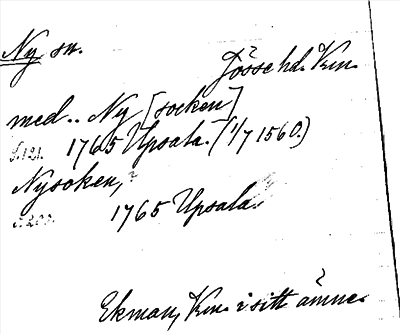 Ny sn.
Jösse hd. Vrm.
med.. Ny [socken]
s. 121. 1765 Upsala. (1/7 1560.)
Nysoken,
1765 Upsala.
Ekman, Vrm. i sitt ämne.